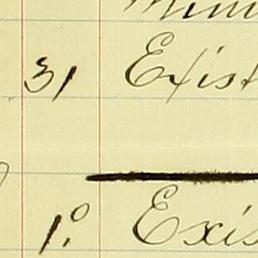 31 Exist
1º Exis